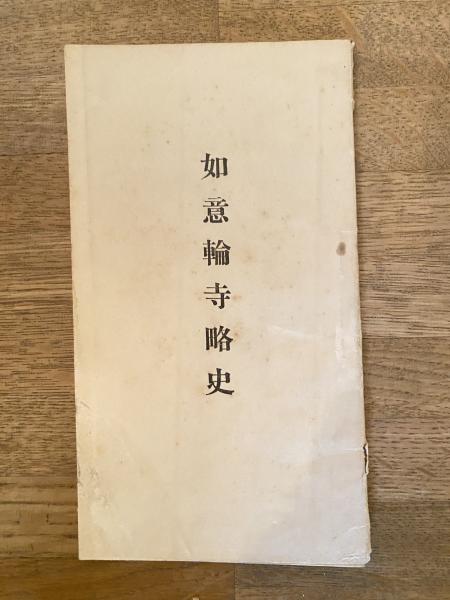 如意輪寺略史